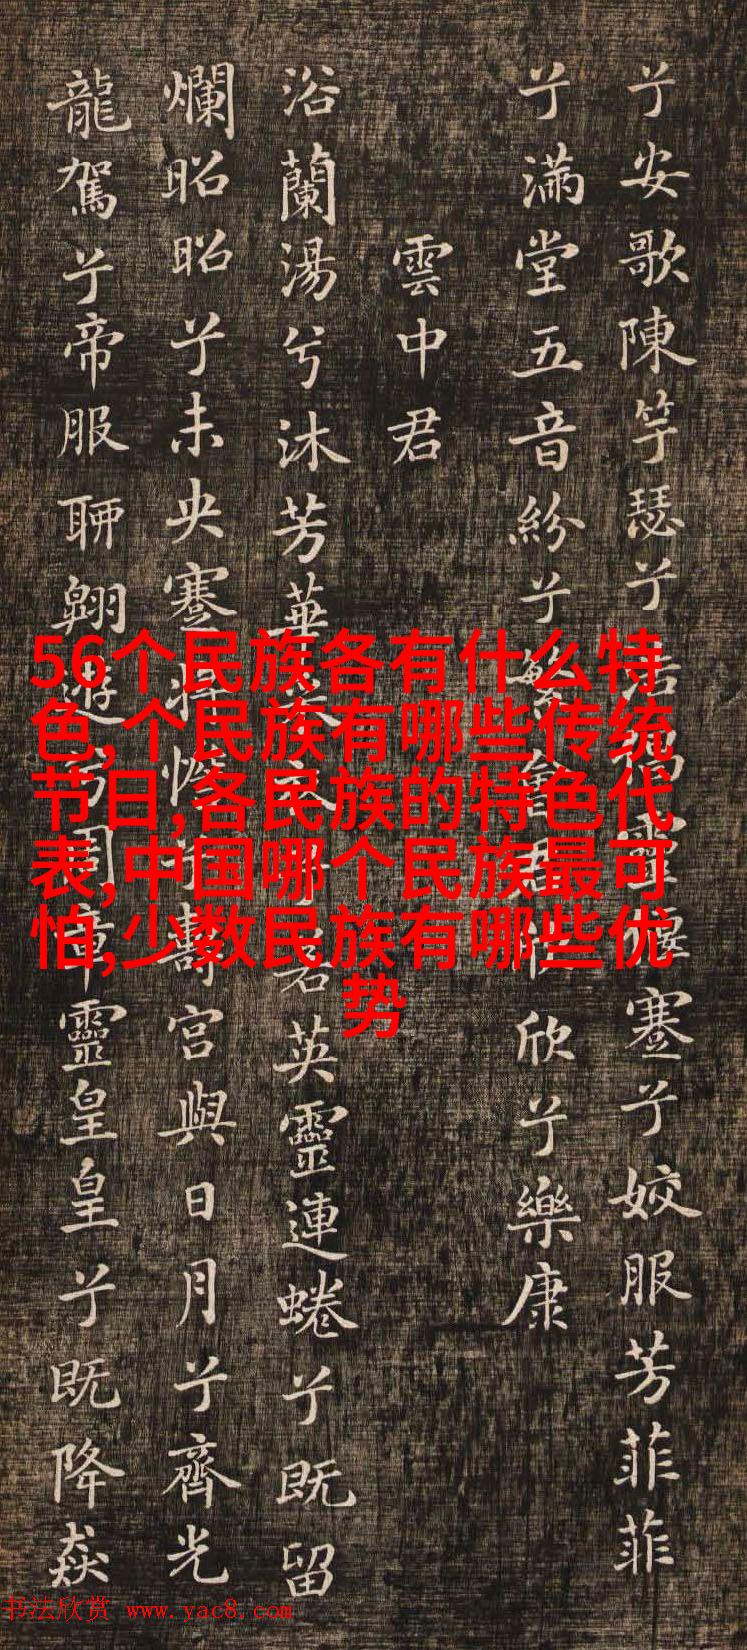 兮安歌陳竽瑟兮浩倡靈偃蹇兮姣服芳菲菲
兮滿堂五音紛兮繁會君欣欣兮樂康
雲中君
浴蘭湯兮沐芳華采衣兮若英靈連蜷兮既留
爛昭昭兮未央蹇將憺兮壽宮與日月兮齊光
龍駕兮帝服聊翱遊兮周章靈皇皇兮既降猋
56个民族各有什么特
色,个民族有哪些传统
节日,各民族的特色代
表,中国哪个民族最可
怕,少数民族有哪些优
势
书法欣赏 www.yac8.com